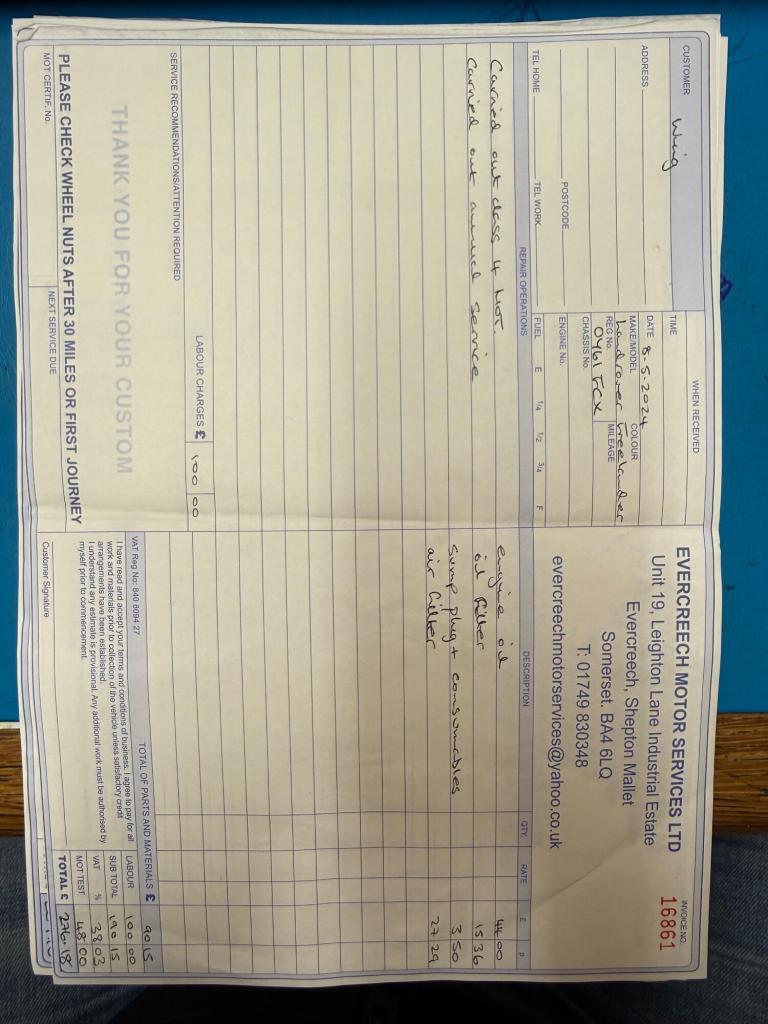 EVERCREECH MOTOR SERVICES LTD
INVOICE NO.
16861
Unit 19, Leighton Lane Industrial Estate
Evercreech, Shepton Mallet
Somerset. BA4 6LQ
T: 01749 830348
evercreechmotorservices@yahoo.co.uk
CUSTOMER
ADDRESS
POSTCODE
TEL HOME
TEL WORK
WHEN RECEIVED
TIME
DATE 8.5.2024
MAKE/MODEL
COLOUR
Landrover Freelander
REG No.
MILEAGE
CHASSIS No.
ENGINE No.
FUEL E 1/4 1/2 3/4 F
REPAIR OPERATIONS
Carried out class 4 Mot.
Carried out annual service
LABOUR CHARGES £ 100 00
SERVICE RECOMMENDATIONS/ATTENTION REQUIRED
THANK YOU FOR YOUR CUSTOM
PLEASE CHECK WHEEL NUTS AFTER 30 MILES OR FIRST JOURNEY
MOT CERTIF. No.
NEXT SERVICE DUE
DESCRIPTION QTY. RATE £ p
engine oil 44 00
oil filter 15 36
sump plug + consumables 3 50
air filter 27 29
TOTAL OF PARTS AND MATERIALS £ 90 15
VAT Reg No: 840 8094 27
I have read and accept your terms and conditions of business. I agree to pay for all
work and materials prior to collection of the vehicle unless satisfactory credit
arrangements have been established.
I understand any estimate is provisional. Any additional work must be authorised by
myself prior to commencement.
Customer Signature
LABOUR 100 00
SUB TOTAL 190 15
VAT % 38 03
MOT TEST 48 00
TOTAL £ 276.18